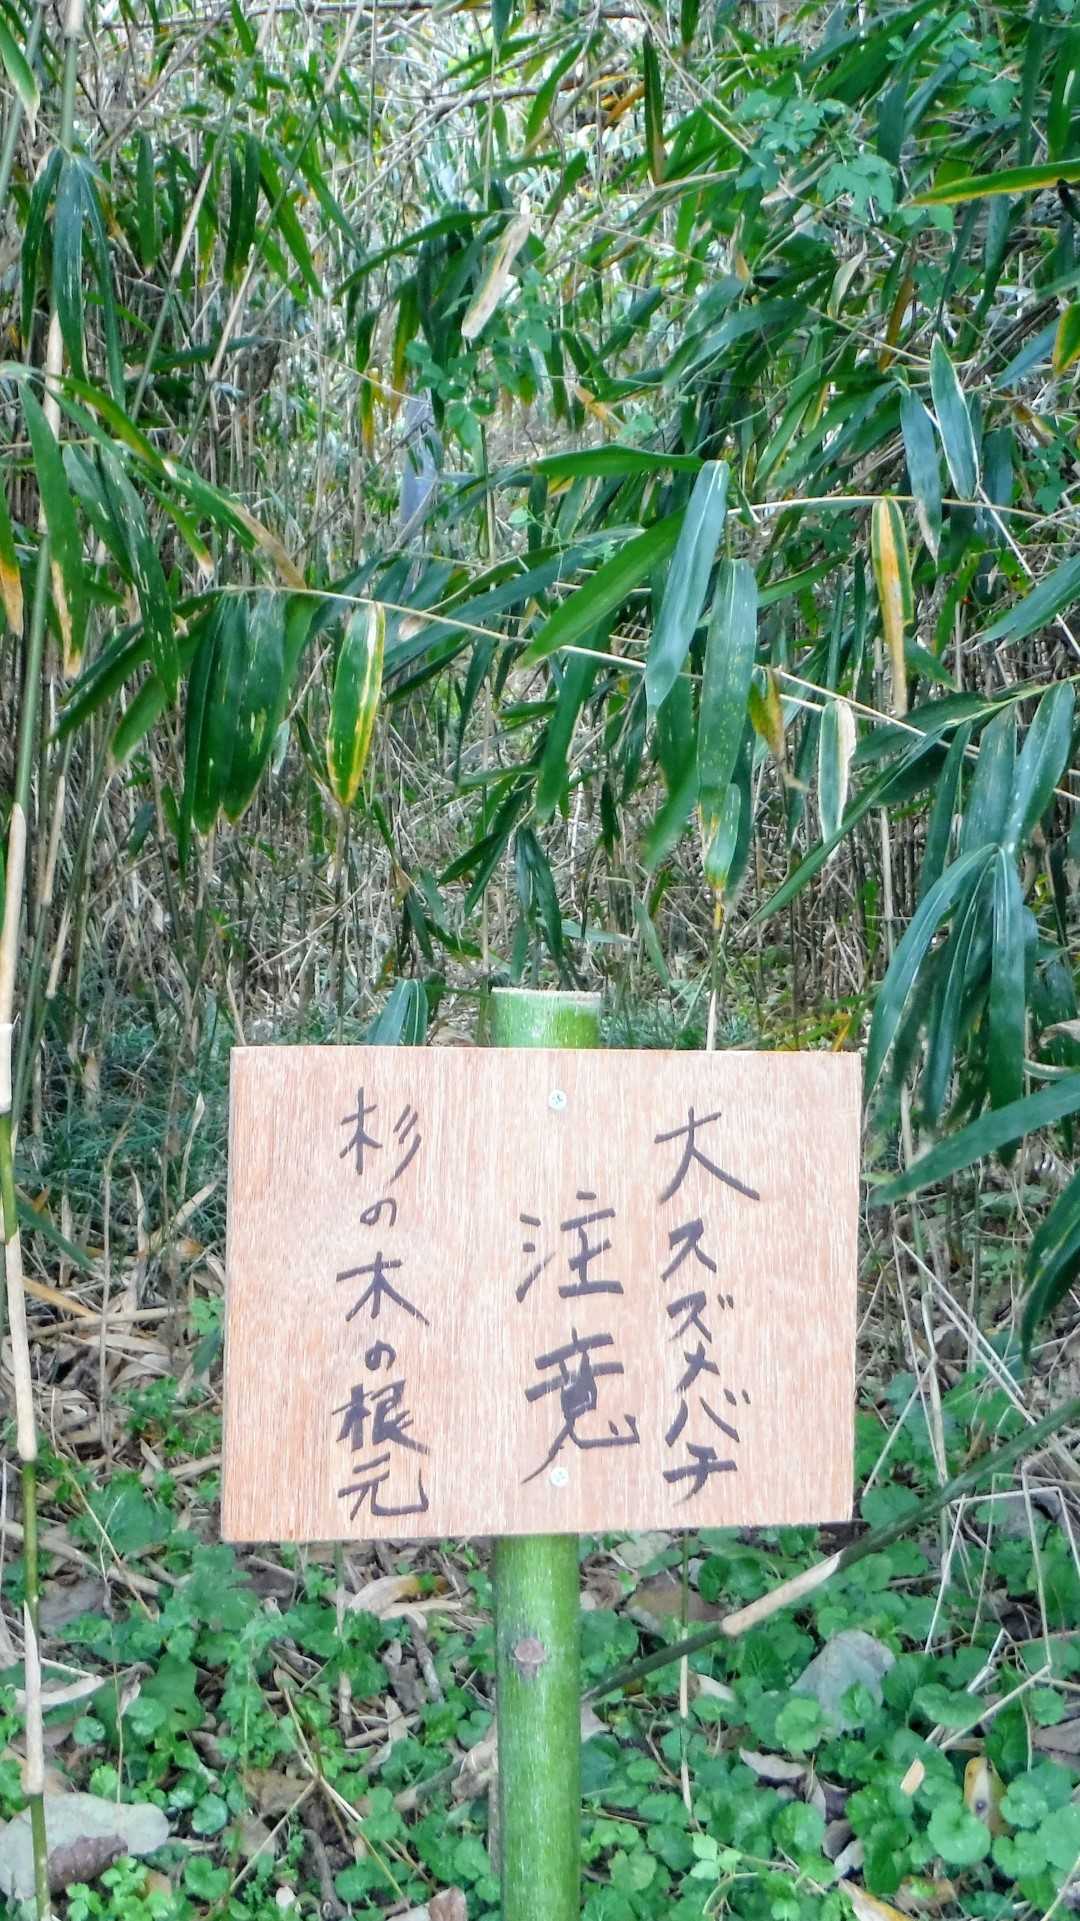 大スズメバチ
注意
杉の木の根元